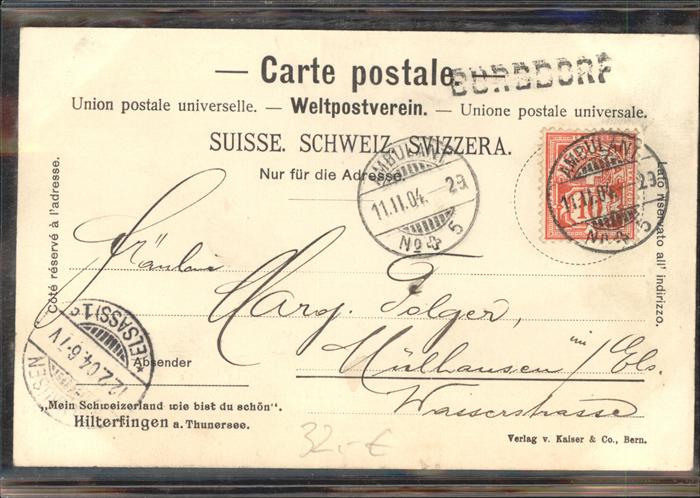 — Carte postale. —
BURGDORF
Union postale universelle. — Weltpostverein. — Unione postale universale.
SUISSE. SCHWEIZ. SVIZZERA.
Nur für die Adresse.
Côté réservé à l'adresse.
Lato riservato all' indirizzo.
AMBULANT
11.II.04. 29
No 5
AMBULANT
11.II.04. 29
No 5
10
Fräulein
Marg. Folger,
Mülhausen im/Els.
Wasserstrasse
(ELSASS) 1 c
12.2.04.6-7V
Absender
„Mein Schweizerland wie bist du schön".
Hilterfingen a. Thunersee.
32.- €
Verlag v. Kaiser & Co., Bern.